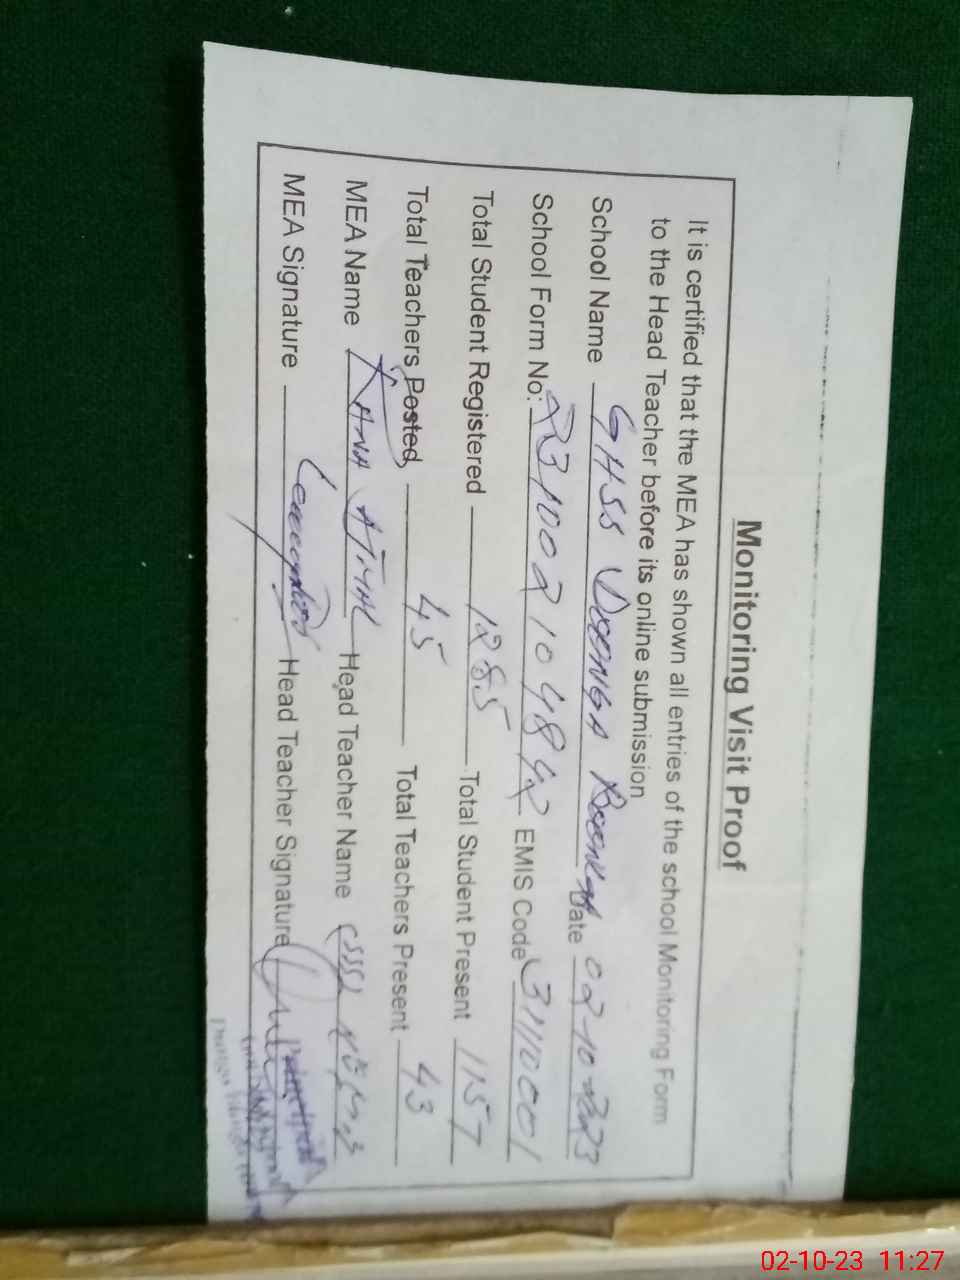 Monitoring Visit Proof
It is certified that the MEA has shown all entries of the school Monitoring Form
to the Head Teacher before its online submission
School Name GHSS Date 02-10-2023
School Form No: 231002104842 EMIS Code 31110001
Total Student Registered 1285 Total Student Present 1157
Total Teachers Posted 45 Total Teachers Present 43
MEA Name Head Teacher Name
MEA Signature Head Teacher Signature
Principal
02-10-23 11:27